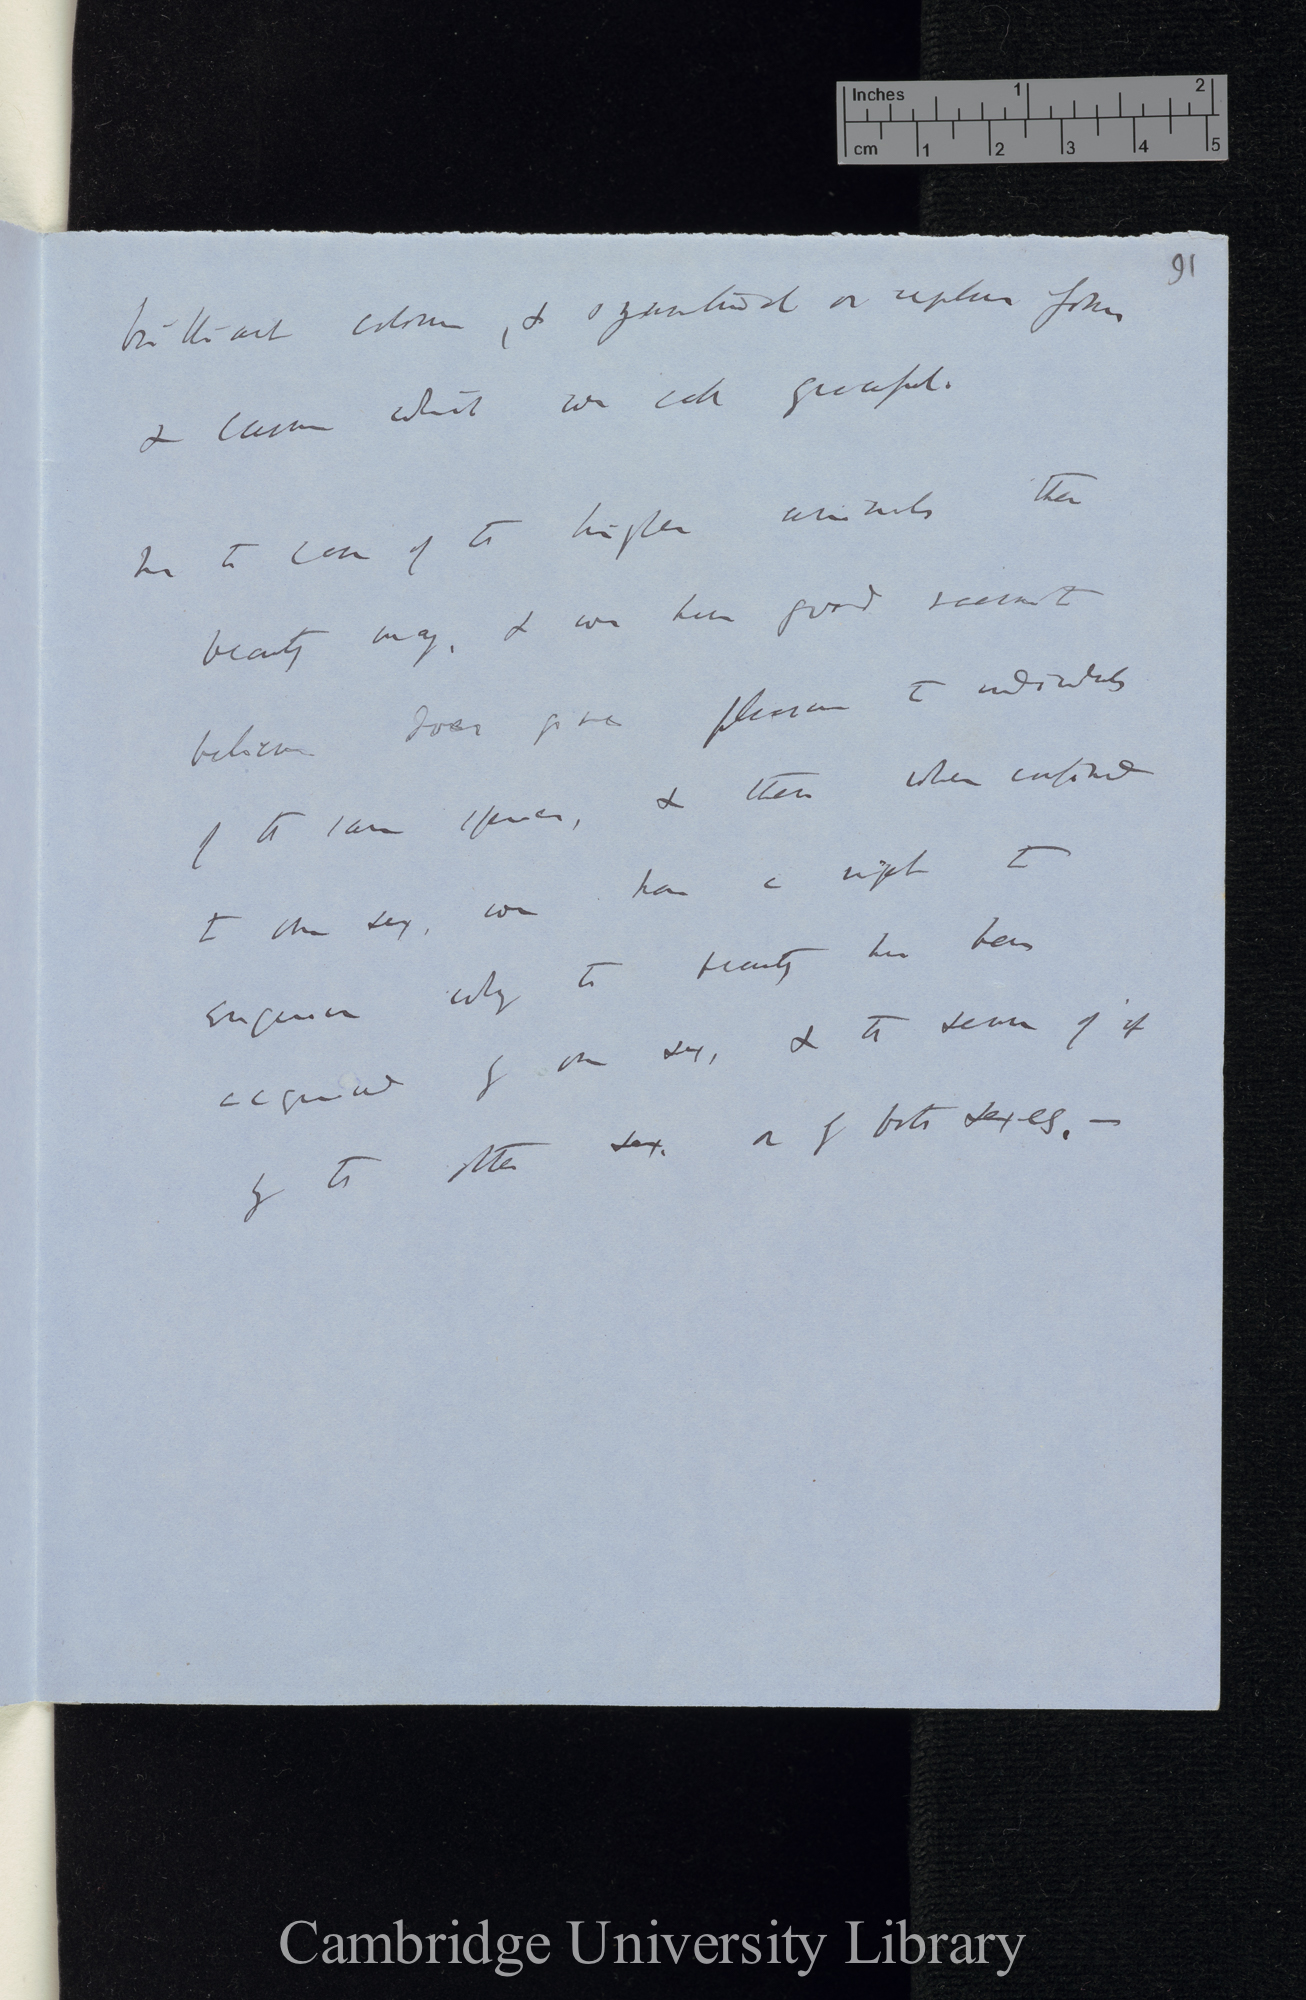 Inches 1 2
cm 1 2 3 4 5
91
brilliant colours, & symmetrical or regular forms
& curves which we call graceful.
In the case of the higher animals there
beauty may, & we have good reason to
believe does give pleasure to individuals
of the same species, & then when confined
to one sex, we have a right to
enquire why the beauty has been
acquired by one sex, & the sense of it
by the other sex. or by both sexes. —
Cambridge University Library